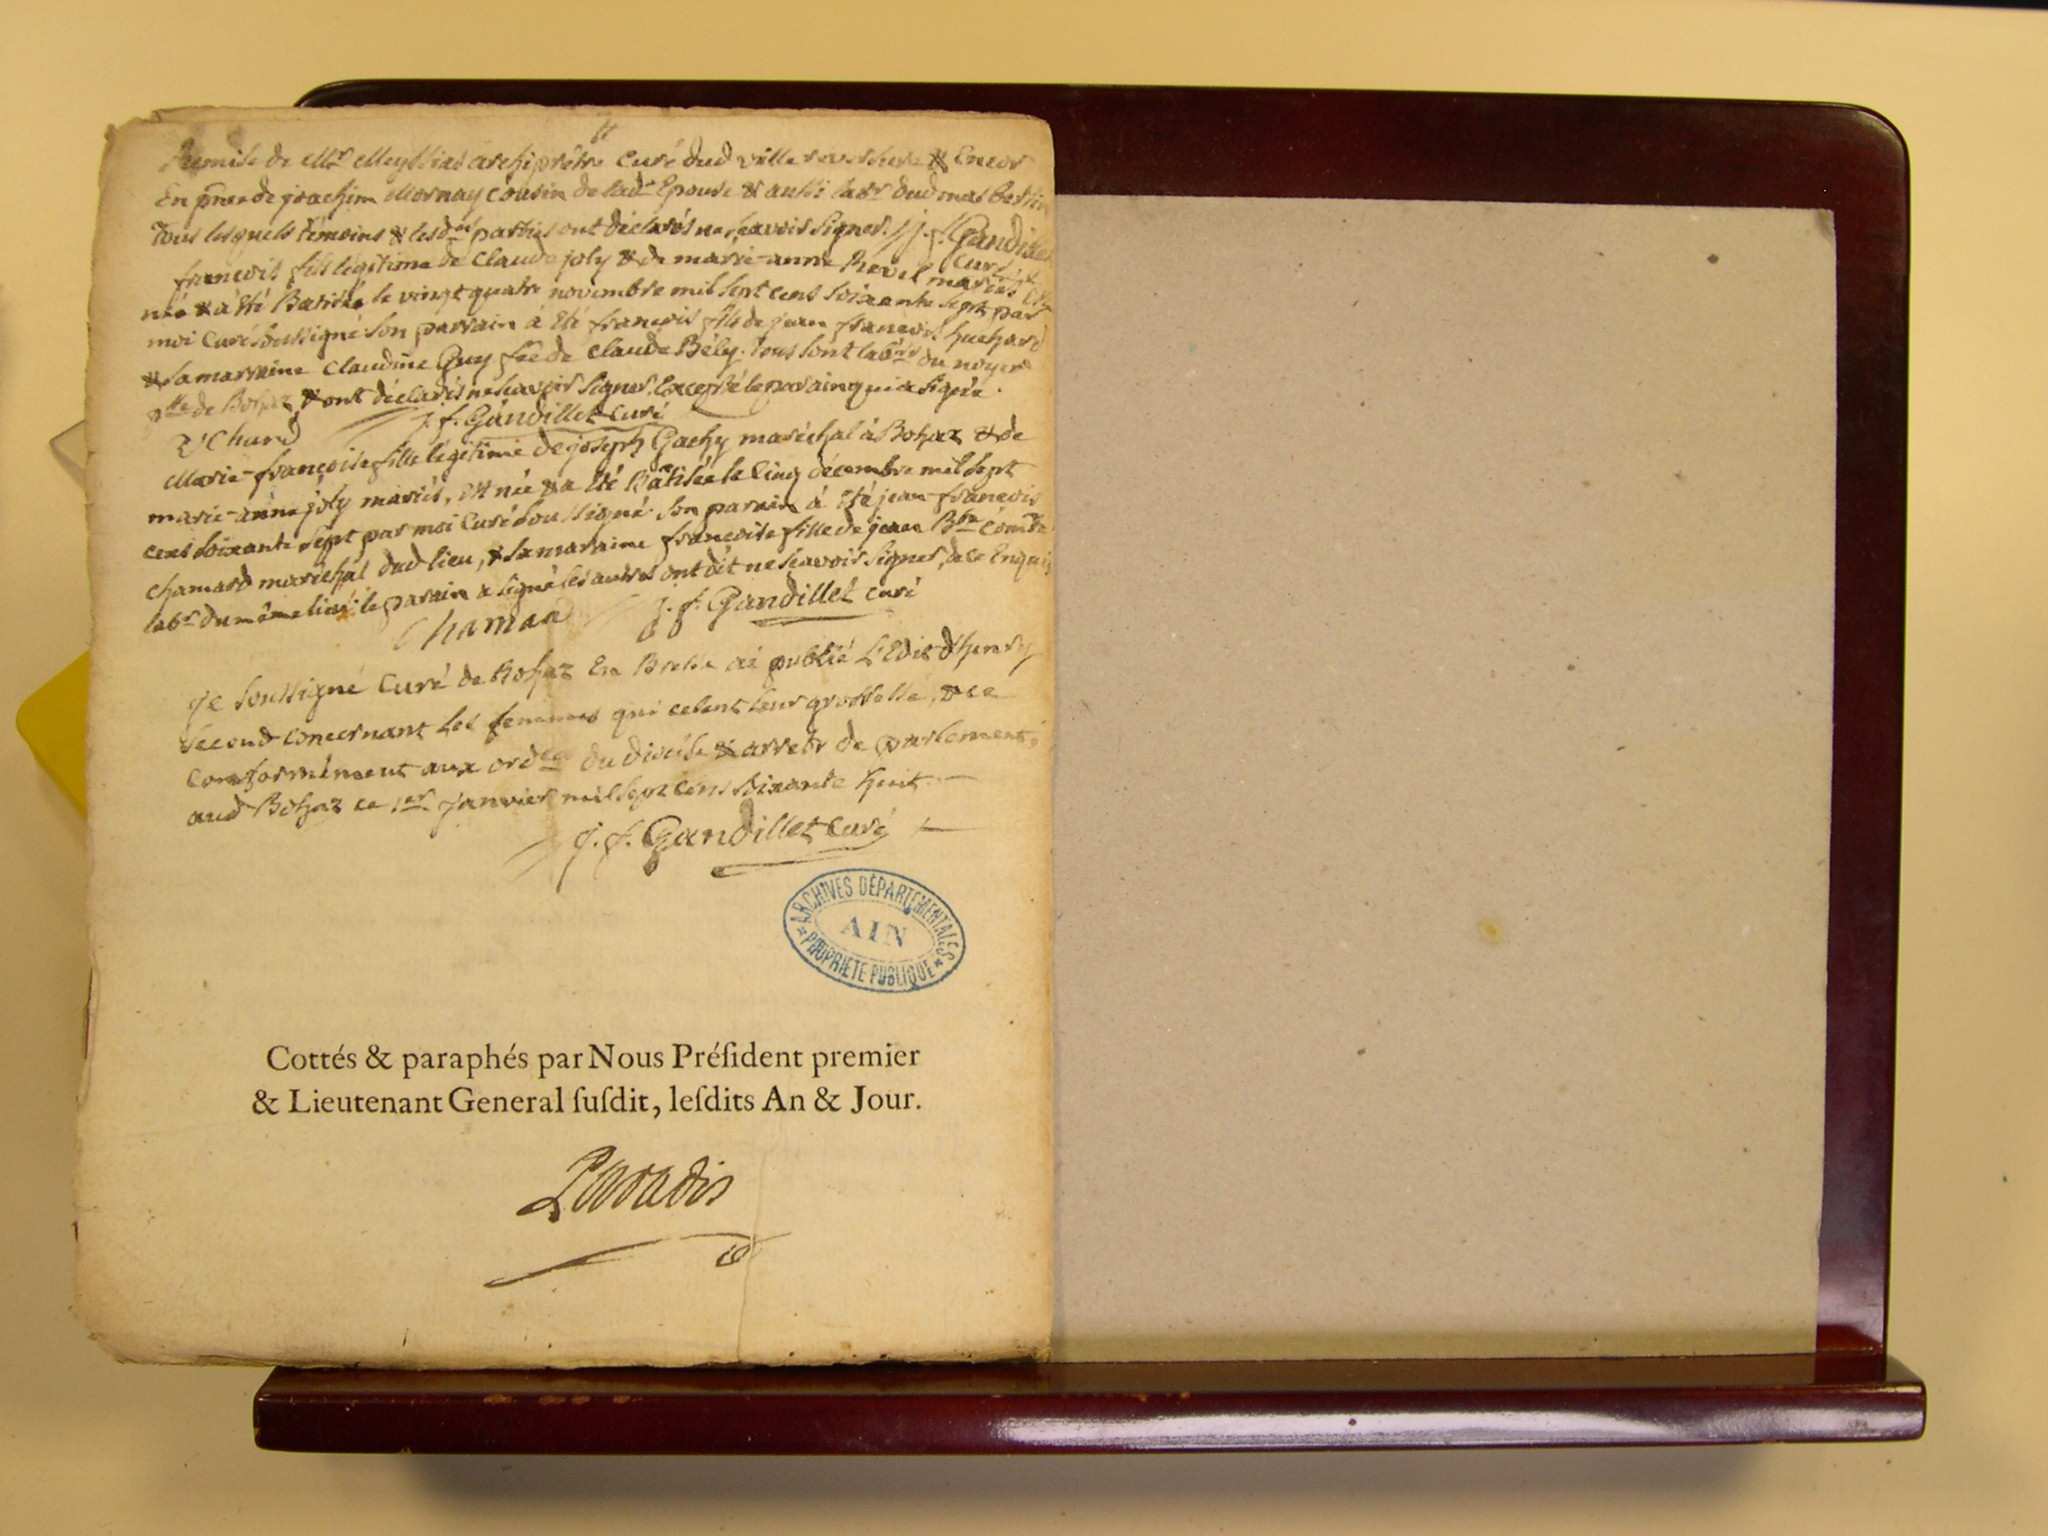 Remise de Mr Meyssias archiprêtre curé dud ville reversure & Encor
En pnce de joachim Mornay cousin de lade Epouse & aussi labr dud mas
tous lesquels témoins & lesdes parties ont déclarés ne sçavoir signer. J. f. Gandillet
curé
françois fils légitime de Claude joly & de marie-anne Revel mariés est
née & à été Batisée le vingt quatre novembre mil sept cens soixante sept par
moi curé soussigné son parrain à été françois fils de jean françois huchard
& sa marraine Claudine Guy fée de claude Bély. tous sont labrs du noyer
psse de Bohaz & ont déclarés ne sçavoir signer, Excepté le parain qui a signé.
J. f. Gandillet curé
Marie-françoise fille légitime de joseph Gachy maréchal à Bohaz & de
marie-anne joly mariés, est née & a été Bâtisée le cinq décembre mil sept
cens soixante sept par moi curé soussigné son parain à été jean-françois
chamard maréchal dud lieu, & sa maraine françoise fille de jean Bte
labr du même lieu. le parain a signé les autres ont dit ne sçavoir signer, de ce Enquis
Chamard J. f. Gandillet curé
Je soussigné curé de Bohaz En Bresse ai publié L'Edit d'henry
second concernant les femmes qui celent leur grossesse, & ce
conformément aux ordces du diocèse & arrets de parlement,
aud Bohaz ce 1er janvier mil sept cens soixante huit.
J. f. Gandillet curé
ARCHIVES DÉPARTEMENTALES
AIN
PROPRIÉTÉ PUBLIQUE
Cottés & paraphés par Nous Préſident premier
& Lieutenant General ſuſdit, leſdits An & Jour.
Paradis